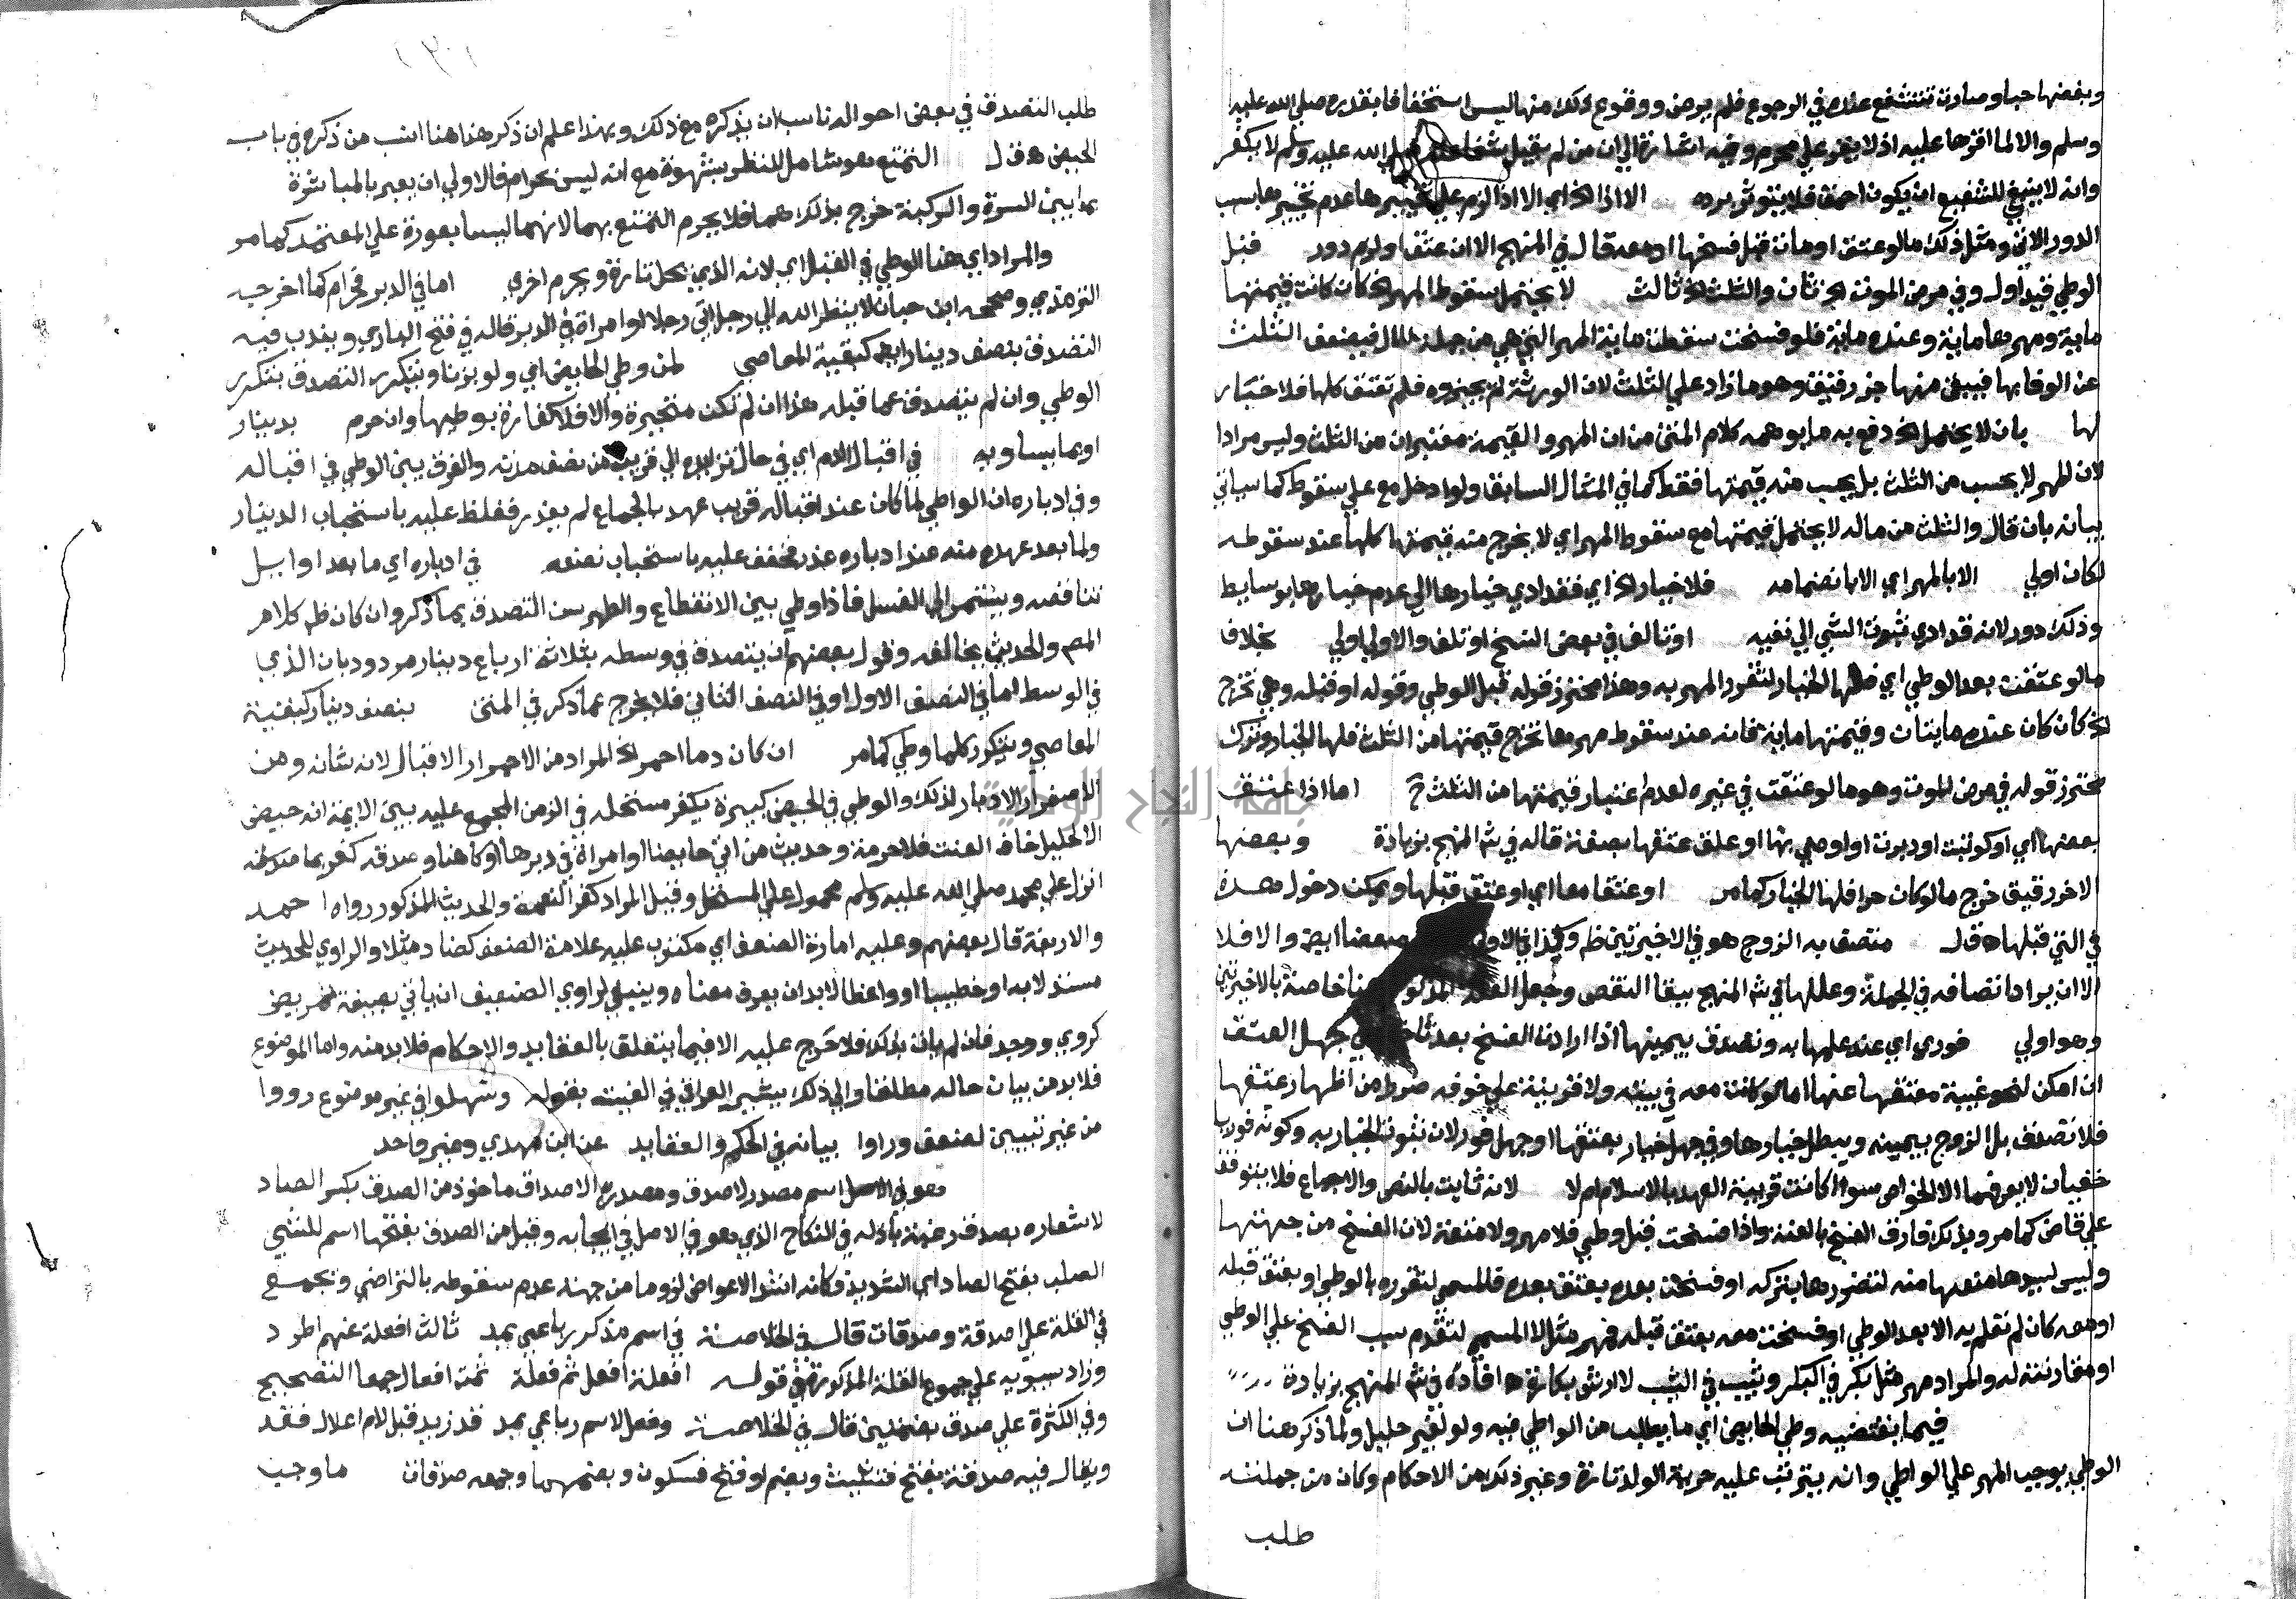 وبغضها حبا وصارت تتشفع عنده في الرجوع فلم يرض ووقوع ذلك منها ليس استخفافا بقدره صلى الله عليه
وسلم والا لما اقرها عليه اذ لا يقر على محرم وفيه اشارة الى ان من لم يقبل شفاعته صلى الله عليه وسلم لا يكفر
وانه لا ينبغي للشفيع ان يكون احمق فلا يتوثر برده الا اذا الخ اي الا اذا لزم على تخييرها عدم تخييرها بسبب
الدور الاتي ومثل ذلك ما لو عتق او مات قبل فسخها او معه قال في المنهج الا ان عتق او لزم دور قبل
الوطي قيد اول وفي مرض الموت الخ ثان والثلث الخ ثالث لا يحتمل سقوط المهر الخ كان كانت قيمتها
ماية ومهرها ماية وعنده ماية فلو فسخت سقطت ماية المهر التي هي من جملة المال فيضعف الثلث
عن الوفا بها فيبقى منها جزء رقيق وهو ما زاد على الثلث لان الورثة لم يجيزوه فلم تعتق كلها فلا خيار
لها بان لا يحتمل الخ دفع به ما يوهمه كلام المتن من ان المهر والقيمة معتبران من الثلث وليس مرادا
لان المهر لا يحسب من الثلث بل يحسب منه قيمتها فقط كما في المثال السابق ولو ادخل مع على سقوط كما سياتي
بيانه بان قال والثلث من ماله لا يحتمل قيمتها مع سقوط المهر اي لا يخرج منه قيمتها كلها عند سقوطه
لكان اولى الا بالمهر اي الا بانضمامه فلا خيار الخ اي فقد ادي خيارها الى عدم خيارها بوسايط
وذلك دور لانه قد ادي ثبوت الشي الى نفيه او تالف في بعض النسخ او تلف والاولى اولى بخلاف
ما لو عتقت بعد الوطي اي فلها الخيار لتقرر المهر به وهذا محترز قوله قبل الوطي وقوله او قبله وهي تخرج
الخ كان كان عنده مايتان وقيمتها ماية فانه عند سقوط مهرها تخرج قيمتها من الثلث فلها الخيار وترك
محترز قوله في مرض الموت وهو ما لو عتقت في غيره لعدم اعتبار قيمتها من الثلث ح اما اذا عتق
بعضها اي او كوتبت او دبرت او اوصي بها او علق عتقها بصفة قاله في ش المنهج بزيادة وبعضها
الاخر رقيق خرج ما لو كان حرا فلها الخيار كما مر او عتقا معا اي او عتق قبلها ويمكن دخول هذه
في التي قبلها ه ق ل متصف به الزوج هو في الاخيرتين ظ وكذا في الاولى بعضا ايض والا فلا
الا ان يراد اتصافه في الجملة وعللها في ش المنهج ببقا النقص وجعل العلة المذكورة هنا خاصة بالاخيرتين
وهو اولى فوري اي عند علمها به وتصدق بيمينها اذا ارادت الفسخ بعد تاخيره في جهل العتق
ان امكن لنحو غيبة معتقها عنها اما لو كانت معه في بيته ولا قرينة على خوفه ضررا من اظهار عتقها
فلا تصدق بل الزوج بيمينه ويبطل خيارها وفي جهل خيار بعتقها او جهل فور لان ثبوت الخيار به وكونه فوريا
خفيان لا يعرفهما الا الخواص سوا اكانت قريبة العهد بالاسلام ام لا لانه ثابت بالنص والاجماع فلا يتوقف
على قاض كما مر وبذلك فارق الفسخ بالعنة واذا فسخت قبل وطي فلا مهر ولا متعة لان الفسخ من جهتها
وليس لسيدها منعها منه لتضررها بتركه او فسخت بعده بعتق بعده فالمسمى لتقرره بالوطي او بعتق قبله
او معه كان لم تعلم به الا بعد الوطي او فسخت معه بعتق قبله فمهر مثل لا المسمى لتقدم سبب الفسخ على الوطي
او مقارنته له والمراد مهر مثل بكر في البكر وثيب في الثيب لا ارش بكارة ه افاده في ش المنهج بزيادة
فيما يقتضيه وطي الحايض اي ما يطلب من الواطي فيه ولو لغير حليل ولما ذكر هنا ان
الوطي يوجب المهر على الواطي وانه يترتب عليه حرية الولد تارة وغير ذلك من الاحكام وكان من جملته
طلب
طلب التصدق في بعض احواله ناسب ان يذكره مع ذلك وبهذا علم ان ذكر هذا هنا انسب من ذكره في باب
الحيض ه ق ل التمتع هو شامل للنظر بشهوة مع انه ليس بحرام فالاولى ان يعبر بالمباشرة
بما بين السرة والركبة خرج بذلك هما فلا يحرم التمتع بهما لانهما ليسا بعورة على المعتمد كما مر
والمراد اي هنا الوطي في القبل اي لانه الذي يحل تارة ويحرم اخرى اما في الدبر فحرام كما اخرجه
الترمذي وصححه ابن حبان لا ينظر الله الى رجل اتى رجلا او امراة في الدبر قاله في فتح الباري ويندب فيه
التصدق بنصف دينار ايضا كبقية المعاصي لمن وطي الحايض اي ولو بزنا ويتكرر التصدق بتكرر
الوطي وان لم يتصدق عما قبله هذا ان لم تكن متحيرة والا فلا كفارة بوطيها وان حرم بدينار
او بما يساويه في اقبال الدم اي في حال تزايده الى قريب من نصف مدته والفرق بين الوطي في اقباله
وفي ادباره ان الواطي لما كان عند اقباله قريب عهد بالجماع لم يعذر فغلظ عليه باستحباب الدينار
ولما بعد عهده منه عند ادباره عذر فخفف عليه باستحباب نصفه في ادباره اي ما بعد اوايل
تناقصه ويستمر الى الغسل فاذا وطي بين الانقطاع والطهر سن التصدق بما ذكر وان كان ظ كلام
المص والحديث يخالفه وقول بعضهم ان يتصدق في وسطه بثلاثة ارباع دينار مردود بان الذي
في الوسط اما في النصف الاول او في النصف الثاني فلا يخرج عما ذكر في المتن بنصف دينار كبقية
المعاصي ويتكرر كلما وطي كما مر ان كان دما احمر الخ المراد من الاحمرار الاقبال لانه شانه ومن
الاصفرار الادبار لذلك والوطي في الحيض كبيرة يكفر مستحله في الزمن المجمع عليه بين الايمة انه حيض
الا لحليل خاف العنت فلا حرمة وحديث من اتى حايضا او امراة في دبرها او كاهنا وصدقه كفر بما
انزل على محمد صلى الله عليه وسلم محمول على المستحل وقيل المراد كفر النعمة والحديث المذكور رواه احمد
والاربعة قال بعضهم وعليه امارة الضعف اي مكتوب عليه علامة الضعف كضاد مثلا والراوي للحديث
مسند لابد او خطيبا او واعظا لابد ان يعرف معناه وينبغي لراوي الضعيف ان ياتي بصيغة تمريض
كروي ووجد فان لم يات بذلك فلا حرج عليه الا فيما يتعلق بالعقايد والاحكام فلابد منه واما الموضوع
فلابد من بيان حاله مطلقا والى ذلك يشير العراقي في الفيته بقوله وسهلوا في غير موضوع رووا
من غير تبيين لضعف وراوا بيانه في الحكم والعقايد عن ابن مهدي وغير واحد
هو في الاصل اسم مصدر لاصدق ومصدره الاصداق ماخوذ من الصدق بكسر الصاد
لاشعاره بصدق رغبة باذله في النكاح الذي هو في الاصل في ايجابه وقيل من الصدق بفتحها اسم للشي
الصلب بفتح الصاد اي الشديد فكانه اشد الاعواض لزوما من جهة عدم سقوطه بالتراضي وجمعه
في القلة على اصدقة وصدقات قال في الخلاصة في اسم مذكر رباعي بمد ثالث افعلة عنهم اطرد
وزاد سيبويه على جموع القلة المذكورة في قوله افعلة افعل ثم فعلة ثمت افعال جمعا التصحيح
وفي الكثرة على صدق بضمتين قال في الخلاصة وفعل لاسم رباعي بمد قد زيد قبل لام اعلالا فقد
ويقال فيه صدقة بفتح فتثليث وبضم او فتح فسكون وبضمهما وجمعه صدقات ما وجب